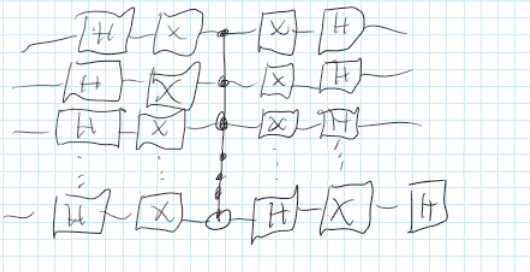 H X X H
H X X H
H X X H
H X H X H